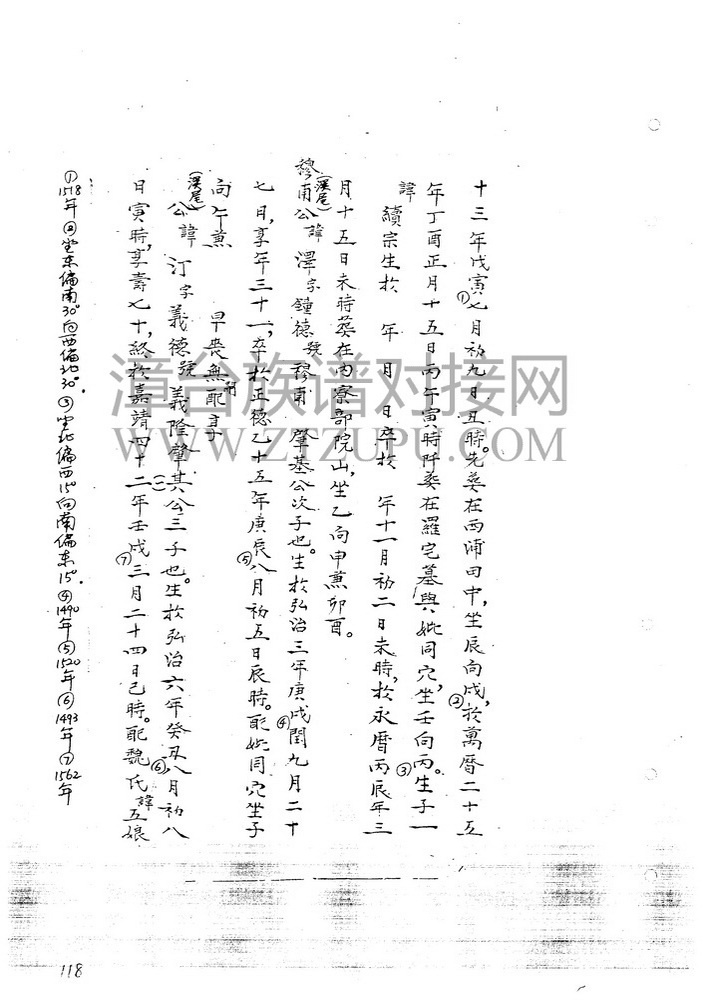 十三年戊寅①七月初九月丑時。先葬在西浦田中,坐辰向戌,②於萬曆二十五
年丁酉正月十五日丙午寅時阡葬在羅宅墓與妣同穴,坐壬向丙。③生子一
諱
續宗生於 年 月 日卒於 年十一月初二日未時,於永曆丙辰年三
月十五日未時葬在内寮部院山,坐乙向申兼卯酉。
穆甫公(溪尾)諱澤字鐘德號穆甫 肇基公次子也。生於弘治三年庚戌④閏九月二十
七日,享年三十一,卒於正德乙十五年庚辰⑤八月初五日辰時。配妣同穴坐子
向午兼 早喪無配享
(溪尾)公諱汀字義德號義隆肇其(一)公三子也。生於弘治六年癸丑⑥八月初八
日寅時,享壽七十,終於嘉靖四十二年壬戌⑦三月二十四日巳時。配魏氏諱五娘
①1518年②坐东偏南30°向西偏北30°.③坐北偏西15°向南偏东15°.④1490年⑤1520年⑥1493年⑦1562年
118
漳台族谱对接网
WWW.ZTZUPU.COM